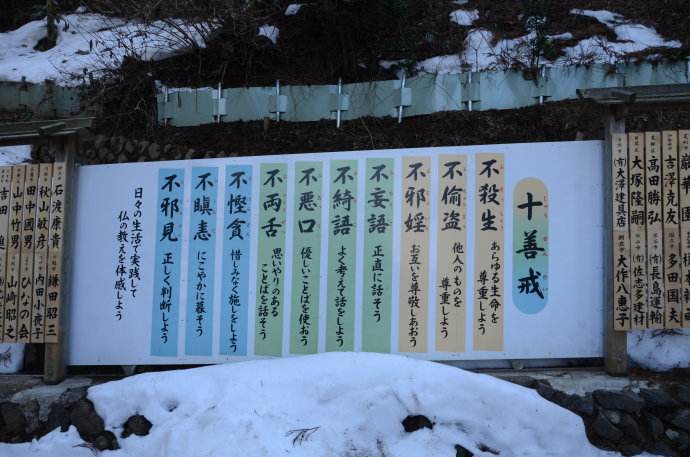 十善戒
不殺生
あらゆる生命を
尊重しよう
不偷盗
他人のものを
尊重しよう
不邪婬
お互いを尊敬しあおう
不妄語
正直に話そう
不綺語
よく考えて話をしよう
不悪口
優しいことばを使おう
不両舌
思いやりのある
ことばを話そう
不慳貪
惜しみなく施しをしよう
不瞋恚
にこやかに暮そう
不邪見
正しく判断しよう
日々の生活で実践して
仏の教えを体感しよう
吉澤克友
多田国夫
髙田勝弘
(有)長島運輸
大塚隆嗣
(有)佐志多建材
(有)大澤建具店
大作八恵子
石渡康貴
鎌田昭三
秋山敏彦
内田小夜子
田中国一
ひなの会
山中竹男
山崎昭之